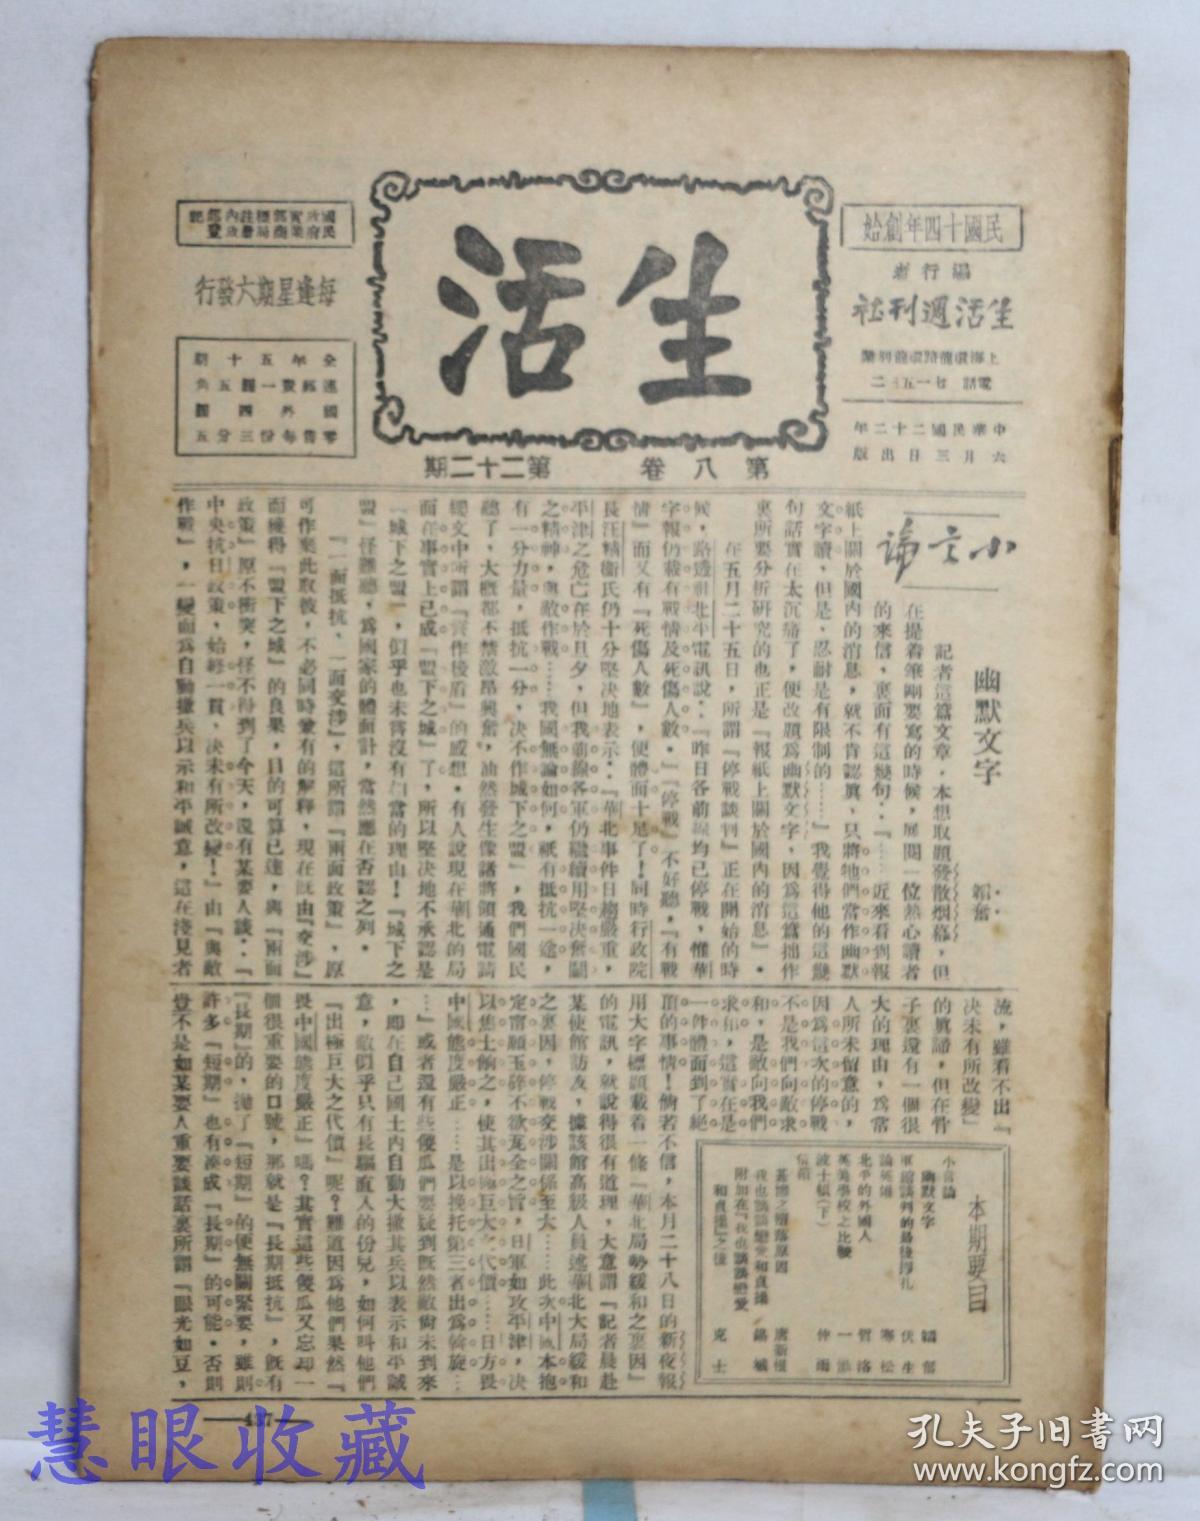 民國十四年創始
編行者
生活週刊社
上海環龍路環龍別業
中華民國二十二年
六月三日出版
生活
第八卷 第二十二期
每逢星期六發行
全年五十期
連郵費一圓五角
國外四圓
零售每份三分五
小言論
幽默文字
韜奮
記者這篇文章，本想取題發散烟幕，但
在提着筆剛要寫的時候，展閱一位熱心讀者
的來信，裏面有這幾句：『……近來看到報
紙上關於國內的消息，就不肯認眞，只將牠們當作幽默
文字讀，但是，忍耐是有限制的……』我覺得他的這幾
句話實在太沉痛了，便改題爲幽默文字，因爲這篇拙作
裏所要分析研究的也正是『報紙上關於國內的消息』。
在五月二十五日，所謂『停戰談判』正在開始的時
候，路透社北平電訊說：『昨日各前線均已停戰，惟華
字報仍載有戰情及死傷人數。』『停戰』不好聽，『有戰
情』而又有『死傷人數』，便體面十足了！同時行政院
長汪精衞氏仍十分堅決地表示：『華北事件日趨嚴重，
平津之危亡在於旦夕，但我前線各軍仍繼續用堅決奮鬭
之精神，與敵作戰……我國無論如何，祇有抵抗一途，
有一分力量，抵抗一分，決不作城下之盟』，我們國民
聽了，大概都不禁激昂興奮，油然發生像諸將領通電請
纓文中所謂『實作後盾』的感想。有人說現在華北的局
面在事實上已成『盟下之城』了，所以堅決地不承認是
『城下之盟』，似乎也未嘗沒有相當的理由！『城下之
盟』怪難聽，爲國家的體面計，當然應在否認之列。
『一面抵抗，一面交涉』，這所謂『兩面政策』，原
可作棄此取彼，不必同時兼有的解釋，現在既由『交涉』
而獲得『盟下之城』的良果，目的可算已達，與『兩面
政策』原不衝突，怪不得到了今天，還有某要人談：『
中央抗日政策，始終一貫，決未有所改變！』由『與敵
作戰』，一變而爲自動撤兵以示和平誠意，這在淺見者
流，雖看不出『
決未有所改變』
的眞諦，但在骨
子裏還有一個很
大的理由，爲常
人所未留意的，
因爲這次的停戰
不是我們向敵求
和，是敵向我們
求和，這實在是
一件體面到了絕
頂的事情！倘若不信，本月二十八日的新夜報
用大字標題載着一條『華北局勢緩和之裏因』
的電訊，就說得很有道理，大意謂『記者晨赴
某使館訪友，據該館高級人員述華北大局緩和
之裏因，停戰交涉關係至大……此次中國本抱
定甯願玉碎不欲瓦全之旨，日軍如攻平津，決
以焦土餉之，使其出極巨大之代價……日方畏
中國態度嚴正……是以挽托第三者出爲斡旋…
…』或者還有些傻瓜們要疑到既然敵尙未到來
，卽在自己國土內自動大撤其兵以表示和平誠
意，敵似乎只有長驅直入的份兒，如何叫他們
『出極巨大之代價』呢？難道因爲他們果然『
畏中國態度嚴正』嗎？其實這些傻瓜又忘却一
個很重要的口號，那就是『長期抵抗』，既有
『長期』的，拋了『短期』的便無關緊要，雖則
許多『短期』也有湊成『長期』的可能。否則
豈不是如某要人重要談話裏所謂『眼光如豆，
本期要目
小言論
幽默文字 韜奮
軍縮談判的最後掙扎 伏生
論英雄 寒松
北平的外國人 哲洛
英美學校之比較 一漁
波士頓(下) 仲雨
信箱
甚囂之墮落原因 唐新愼
我也談談戀愛和貞操 錫城
附加在『我也談談戀愛
和貞操』之後 克士
—437—
慧眼收藏
孔夫子旧书网
www.kongfz.com